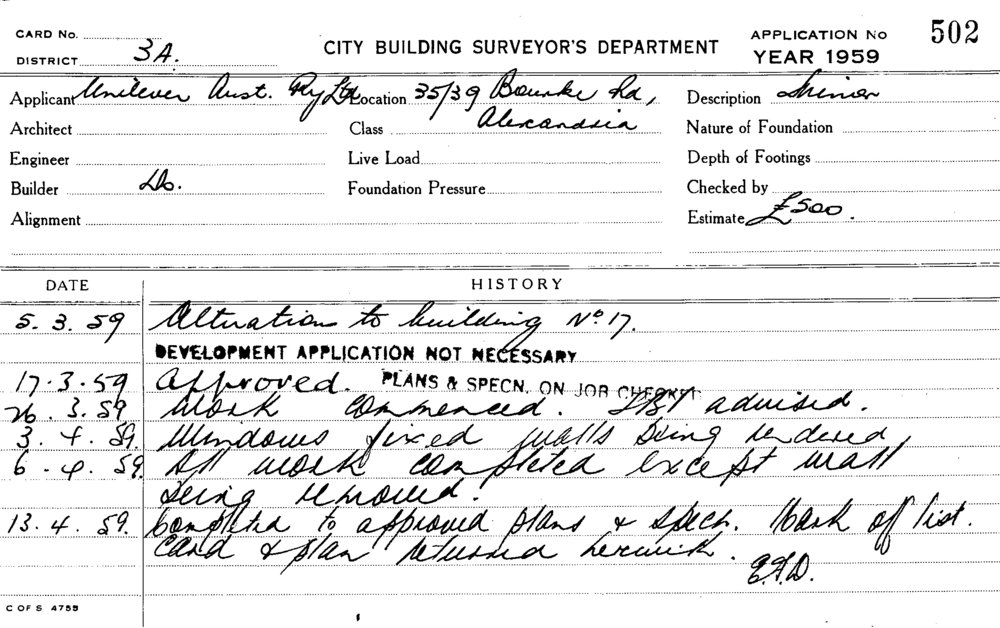 CARD No.
DISTRICT 3A.
CITY BUILDING SURVEYOR'S DEPARTMENT
APPLICATION No 502
YEAR 1959
Applicant Unilever Aust. Pty Ltd Location 35/39 Bourke Rd, Description Minor
Architect Class Alexandria Nature of Foundation
Engineer Live Load Depth of Footings
Builder Do. Foundation Pressure Checked by
Alignment Estimate £500.
DATE HISTORY
5.3.59 Alterations to building No. 17.
DEVELOPMENT APPLICATION NOT NECESSARY
17.3.59 Approved. PLANS & SPECN. ON JOB CHECKED
26.3.59 Work commenced. advised.
3.4.59. Windows fixed walls being rendered,
6.4.59. All work completed except wall
being removed.
13.4.59. Completed to approved plans & specn. Mark off list.
Card & plan returned herewith.
E.F.D.
C OF S 4755